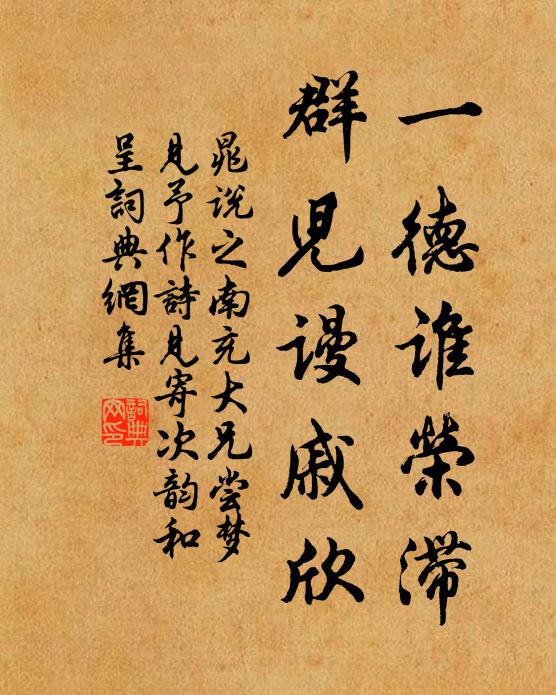 一德谁榮滯
群児谩戚欣
晁说之南充大兄尝梦
見予作詩見寄次韵和
呈詞典網集
詞典
网印